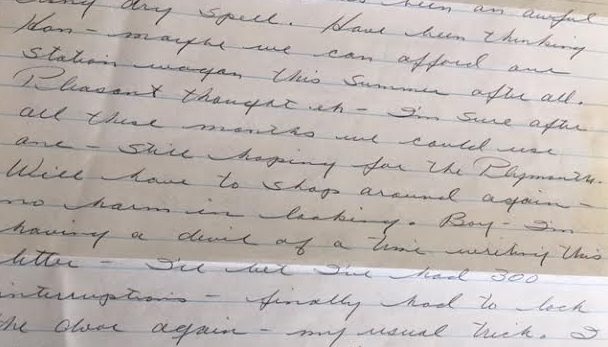 dry spell. Have been thinking
Hon - maybe we can afford our
station wagon this summer after all.
Pleasant thought eh - I'm sure after
all these months we could use
one - still hoping for the Plymouth.
Will have to shop around again -
no harm in looking. Boy - I'm
having a devil of a time writing this
letter - I'll bet I've had 300
interruptions - finally had to lock
the door again - my usual trick. I